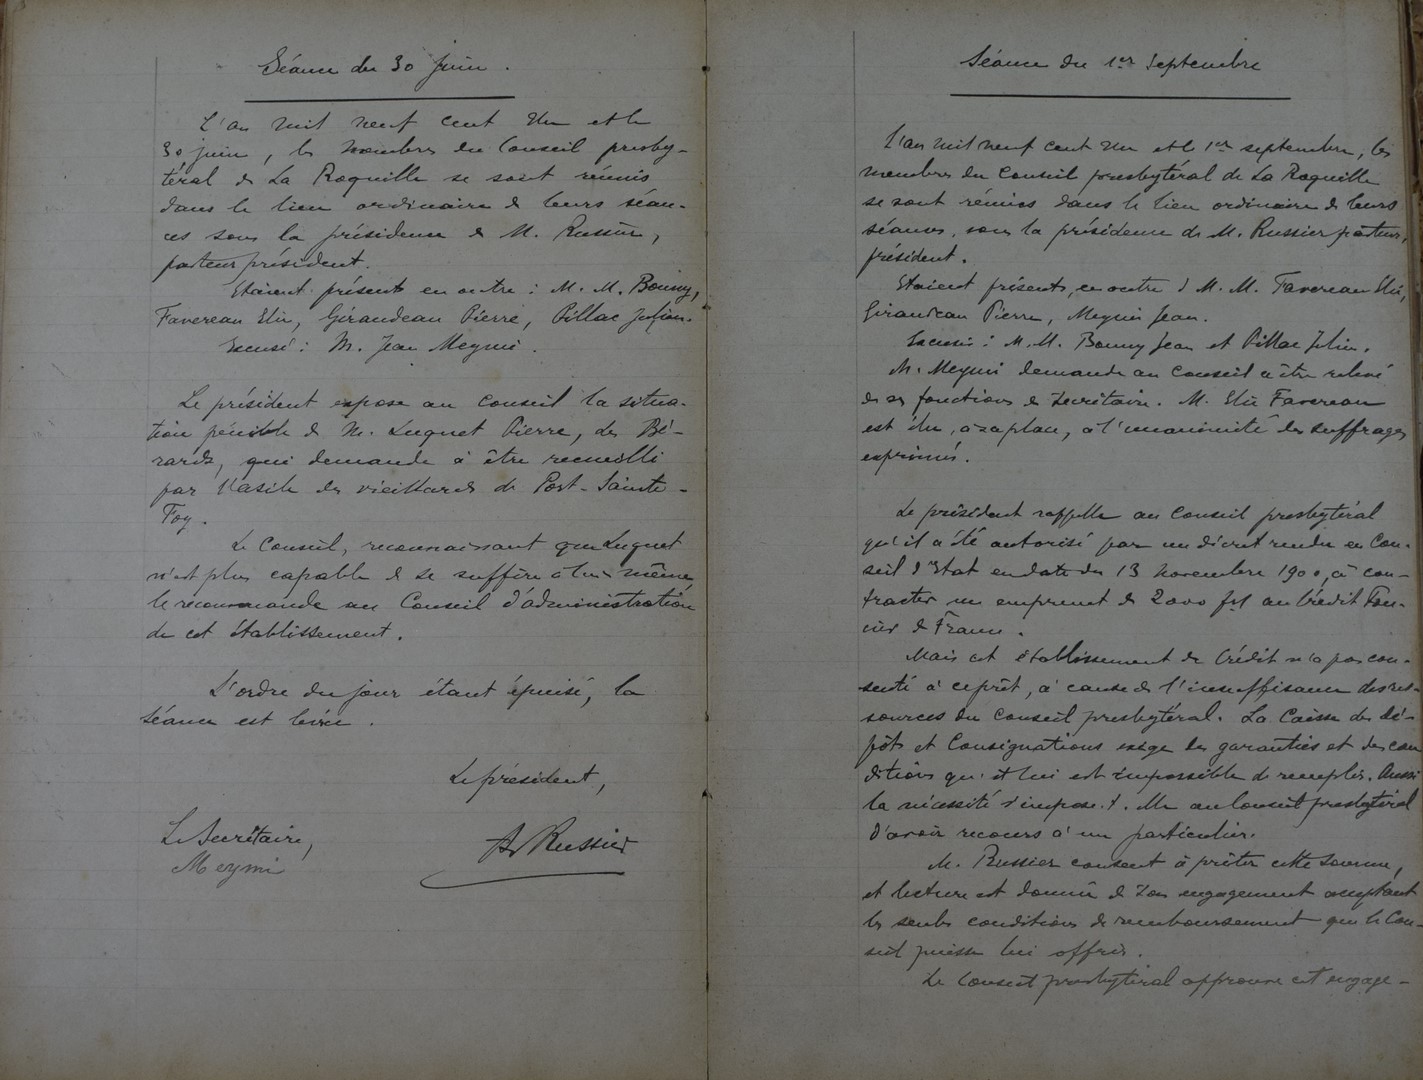 Séance du 30 juin.
L'an mil neuf cent un et le
30 juin, les membres du Conseil presby-
téral de La Roquille se sont réunis
dans le lieu ordinaire de leurs séan-
ces sous la présidence de M. Russier,
pasteur président.
Etaient présents en outre : M. M. Bonny,
Favereau Elie, Giraudeau Pierre, Pillac Julien.
Excusé : M. Jean Meymi.
Le président expose au Conseil la situa-
tion pénible de M. Luquet Pierre, des Bé-
rards, qui demande à être recueilli
par l'Asile des vieillards de Port-Sainte-
Foy.
Le Conseil, reconnaissant que Luquet
n'est plus capable de se suffire à lui même,
le recommande au Conseil d'administration
de cet établissement.
L'ordre du jour étant épuisé, la
séance est levée.
Le président,
Le Secrétaire,
Meymi
Russier
Séance du 1er Septembre
L'an mil neuf cent un et le 1er septembre, les
membres du Conseil presbytéral de La Roquille
se sont réunis dans le lieu ordinaire de leurs
séances, sous la présidence de M. Russier pasteur,
président.
Etaient présents, en outre M. M. Favereau Elie,
Giraudeau Pierre, Meymi Jean.
Excusés : M. M. Bonny Jean et Pillac Julien.
M. Meymi demande au Conseil à être relevé
de ses fonctions de Secrétaire. M. Elie Favereau
est élu, à sa place, à l'unanimité des suffrages
exprimés.
Le président rappelle au Conseil presbytéral
qu'il a été autorisé par un décret rendu en Con-
seil d'Etat en date du 13 Novembre 1900, à con-
tracter un emprunt de 2000 frs au Crédit Fon-
cier de France.
Mais cet établissement de Crédit n'a pas con-
senti à ce prêt, à cause de l'insuffisance des res-
sources du Conseil presbytéral. La Caisse des dé-
pôts et Consignations exige des garanties et des con
ditions qu'il lui est impossible de remplir. Aussi
la nécessité s'impose-t-elle au Conseil presbytéral
d'avoir recours à un particulier.
M. Russier consent à prêter cette somme,
et lecture est donnée de son engagement acceptant
les seules conditions de remboursement que le Con-
seil puisse lui offrir.
Le Conseil presbytéral approuve cet engage-